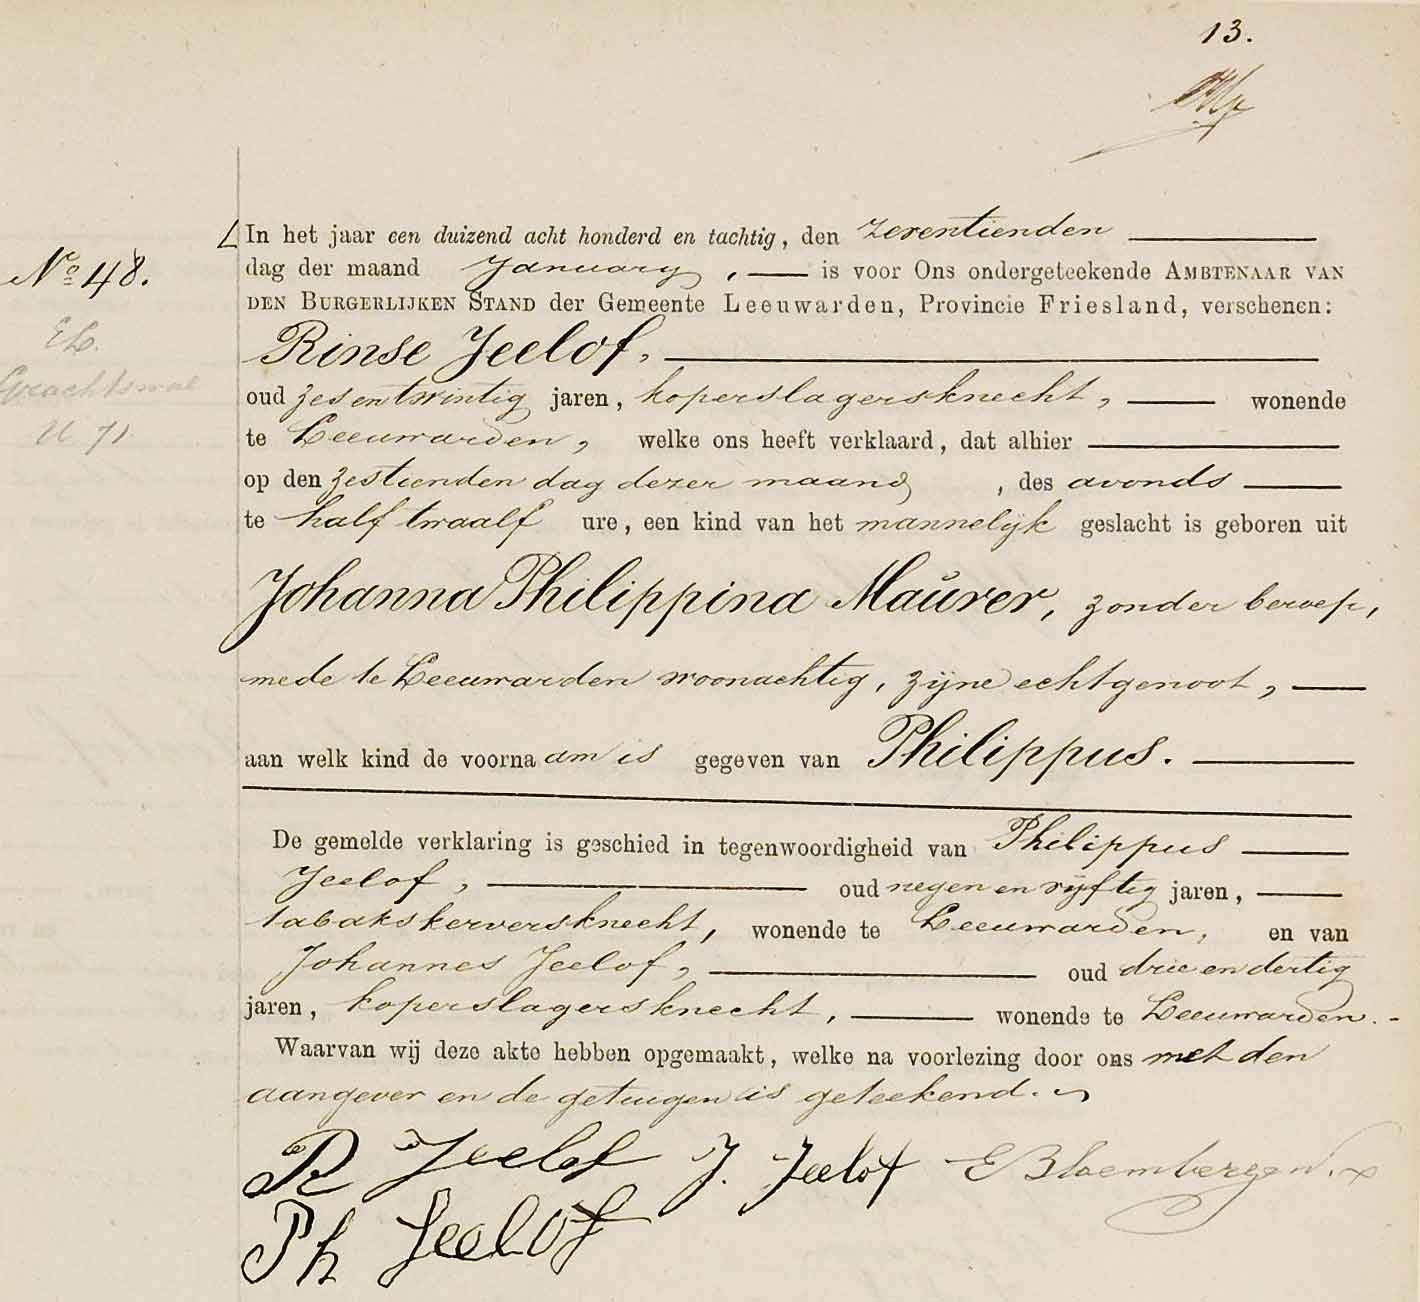 13.
In het jaar een duizend acht honderd en tachtig, den zeventienden
No 48.
dag der maand January, is voor Ons ondergeteekende AMBTENAAR VAN
DEN BURGERLIJKEN STAND der Gemeente Leeuwarden, Provincie Friesland, verschenen:
Rinse Jeelof,
oud zesentwintig jaren, koperslagersknecht, wonende
te Leeuwarden, welke ons heeft verklaard, dat alhier
U 71
op den zestienden dag dezer maand, des avonds
te half twaalf ure, een kind van het mannelijk geslacht is geboren uit
Johanna Philippina Maurer, zonder beroep,
mede te Leeuwarden woonachtig, zijne echtgenoot,
aan welk kind de voornaam is gegeven van Philippus.
De gemelde verklaring is geschied in tegenwoordigheid van Philippus
Jeelof, oud negen en vijftig jaren,
tabakskerversknecht, wonende te Leeuwarden, en van
Johannes Jeelof, oud drie en dertig
jaren, koperslagersknecht, wonende te Leeuwarden.
Waarvan wij deze akte hebben opgemaakt, welke na voorlezing door ons met den
aangever en de getuigen is geteekend.
R Jeelof J. Jeelof E Bloembergen
Ph Jeelof